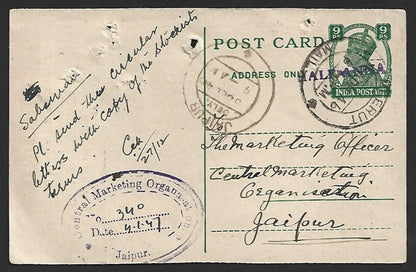 POST CARD
9 PS
9 PS
ADDRESS ONLY
HALF ANNA
INDIA POSTAGE
JAIPUR
Pl. send the circular
letters with copy of the Stockists
terms
27/12
Central Marketing Organisation
No. 340
Date 4.1.47
Jaipur.
The Marketing Officer
Central Marketing
Organisation
Jaipur